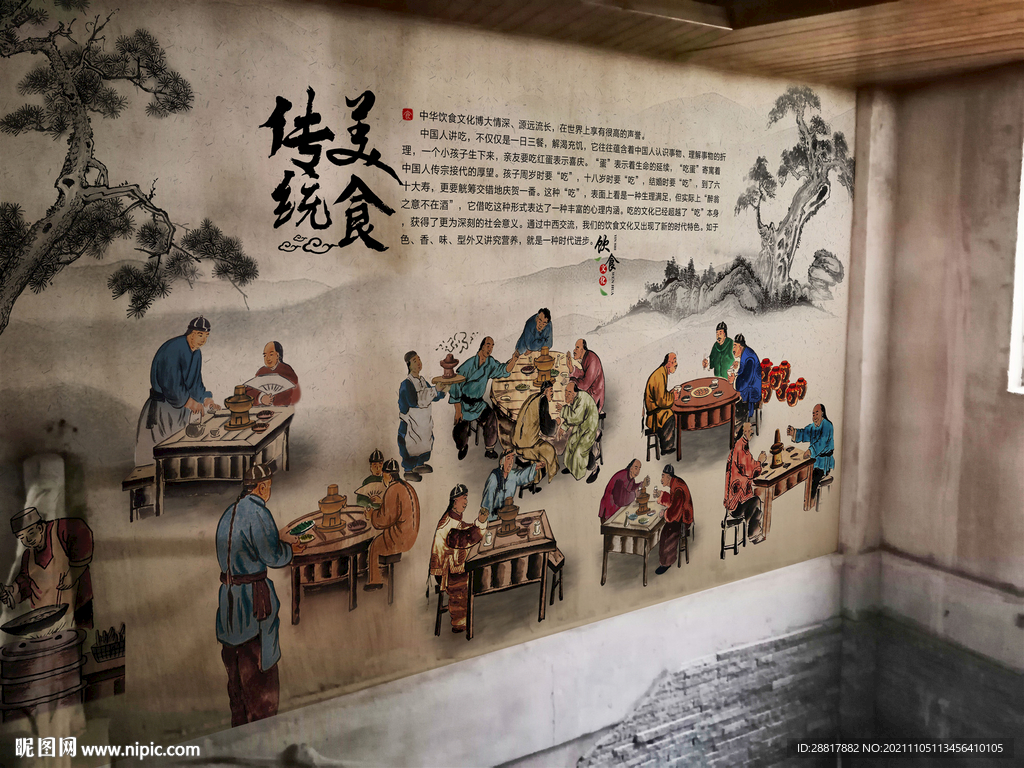 传统
美食
食
中华饮食文化博大情深、源远流长，在世界上享有很高的声誉。
中国人讲吃，不仅仅是一日三餐，解渴充饥，它往往蕴含着中国人认识事物、理解事物的折
理，一个小孩子生下来，亲友要吃红蛋表示喜庆。“蛋”表示着生命的延续，“吃蛋”寄寓着
中国人传宗接代的厚望。孩子周岁时要“吃”，十八岁时要“吃”，结婚时要“吃”，到了六
十大寿，更要觥筹交错地庆贺一番。这种“吃”，表面上看是一种生理满足，但实际上“醉翁
之意不在酒”，它借吃这种形式表达了一种丰富的心理内涵。吃的文化已经超越了“吃”本身
，获得了更为深刻的社会意义。通过中西交流，我们的饮食文化又出现了新的时代特色。如于
色、香、味、型外又讲究营养，就是一种时代进步。
饮食
文化
昵图网 www.nipic.com
ID:28817882 NO:20211105113456410105